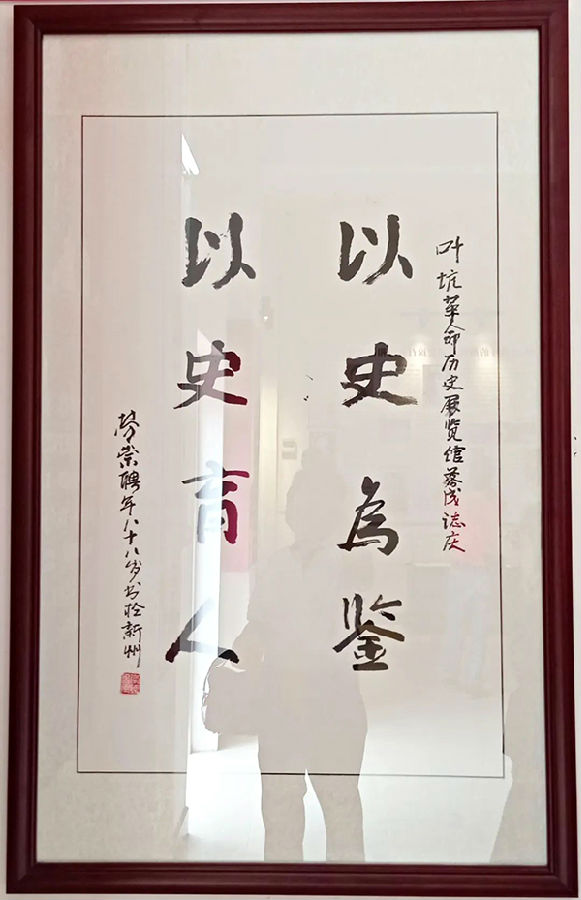 叶坑革命历史展览馆落成志庆
以史为鉴
以史育人
劳崇聘年八十八岁书于新州